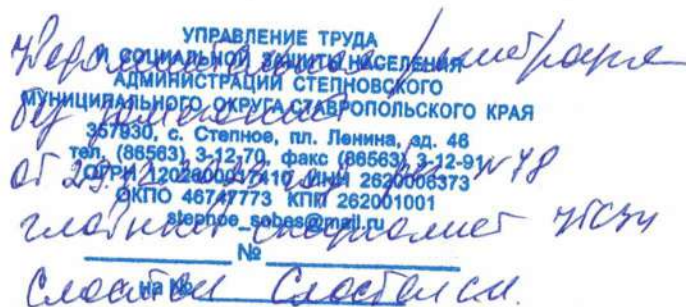 УПРАВЛЕНИЕ ТРУДА
И СОЦИАЛЬНОЙ ЗАЩИТЫ НАСЕЛЕНИЯ
АДМИНИСТРАЦИИ СТЕПНОВСКОГО
МУНИЦИПАЛЬНОГО ОКРУГА СТАВРОПОЛЬСКОГО КРАЯ
357930, с. Степное, пл. Ленина, зд. 46
тел. (86563) 3-12-70, факс (86563) 3-12-91
ОГРН 1202600017410 ИНН 2620006373
ОКПО 46747773 КПП 262001001
stepnoe_sobes@mail.ru
№
на №
Уведомительная регистрация
без замечаний
от №78
главный специалист УТСЗН